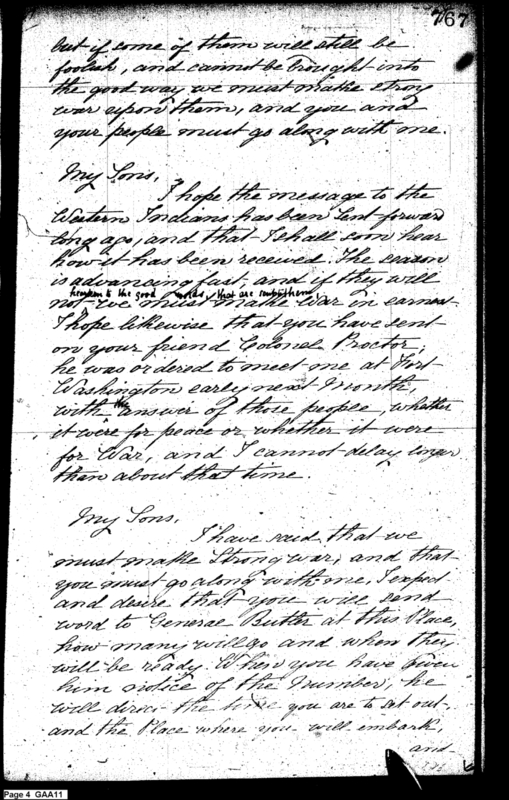 767
but if some of them will still be
foolish, and cannot be brought into
the good way we must make strong
war upon them, and you and
your people must go along with me.
My Sons,
I hope the message to the
Western Indians has been sent forward
long ago, and that I shall soon hear
how it has been received. The season
is advancing fast, and if they will
hearken to the good words, that are sent them
not, we must make War in earnest
I hope likewise that you have sent
on your friend Colonel Proctor;
he was ordered to meet me at Fort
Washington early next Month,
with the answer of those people, whether
it were for peace or whether it were
for War, and I cannot delay longer
than about that time.
My Sons,
I have said that we
must make Strong war, and that
you must go along with me, I expect
and desire that you will send
word to General Butler at this Place,
how many will go and when they
will be ready. When you have given
him notice of the Number, he
will direct the time you are to set out,
and the Place where you will embark,
and
Page 4 GAA11